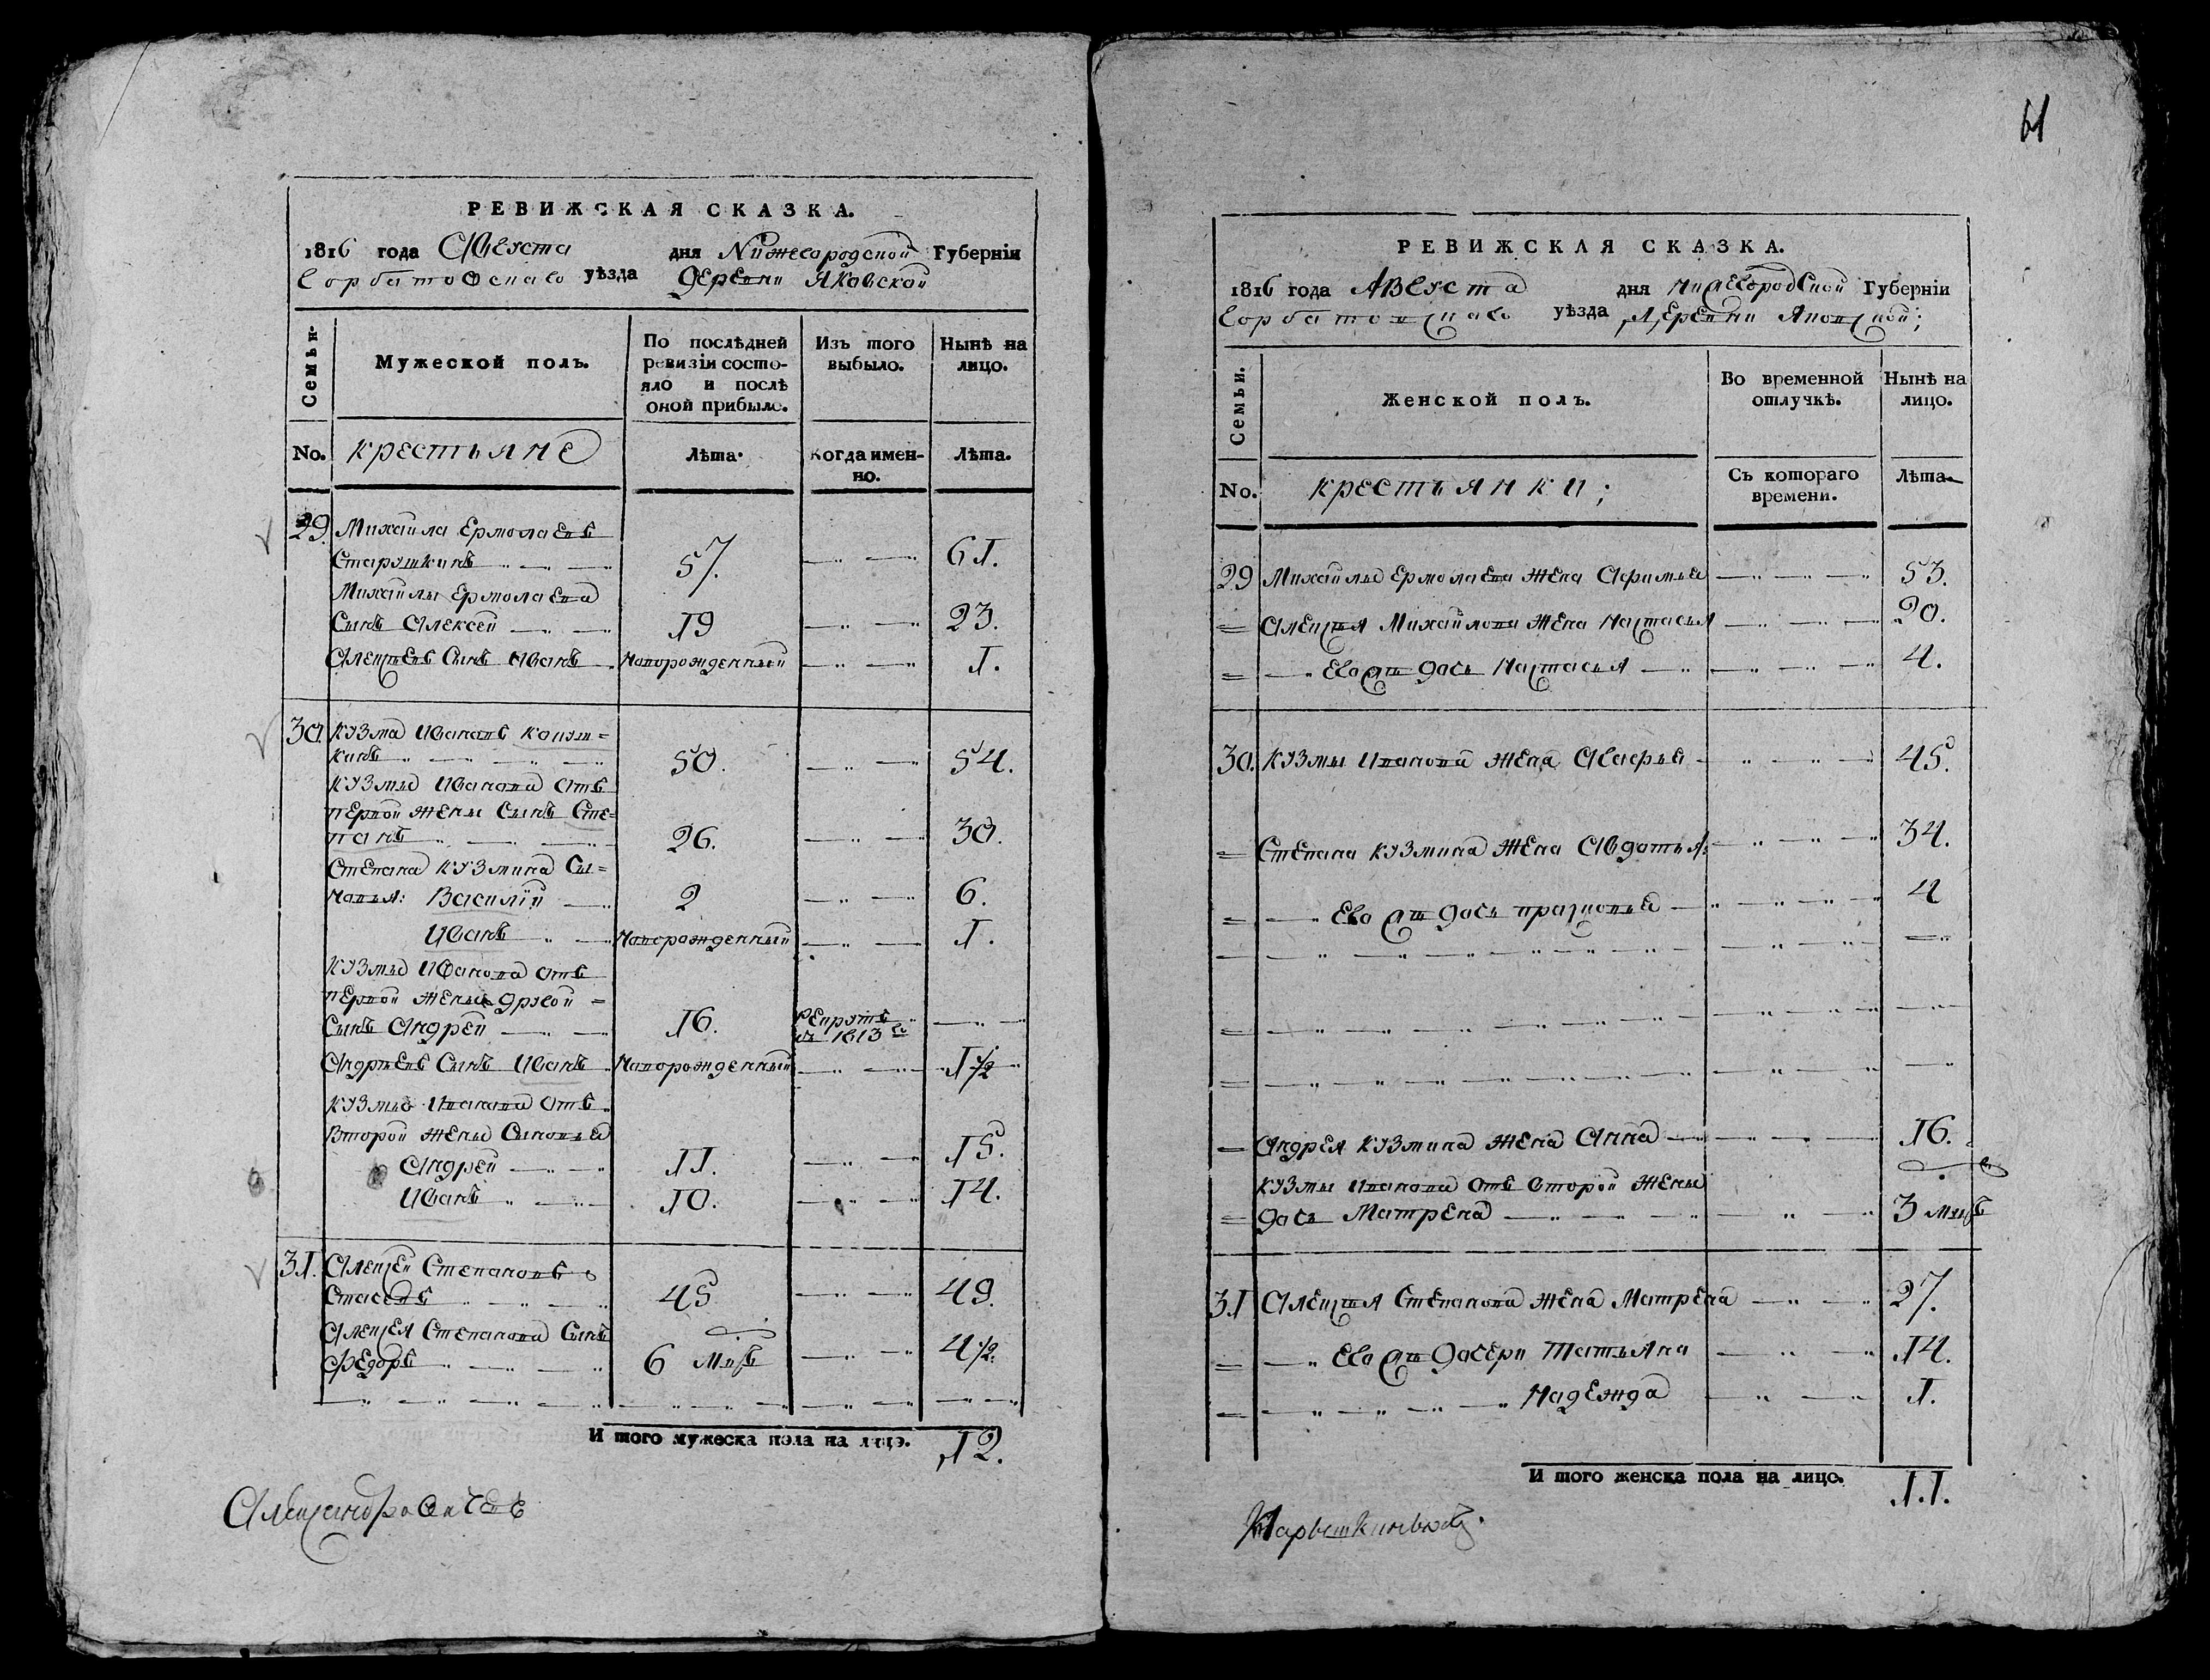 61
РЕВИЖСКАЯ СКАЗКА.
1816 года Августа дня Нижегородской Губерніи
Горбатовскаго уѣзда Деревни Яковской
Семьи. Мужеской полъ. По послѣдней ревизіи состояло и послѣ оной прибыло. Изъ того выбыло. Нынѣ на лицо.
No. Крестьяне Лѣта. Когда именно. Лѣта.
29. Михаила Ермолаевъ
Старушкинъ 57. 61.
Михаилы Ермолаева
Сынъ Алексей 19 23.
Алексѣевъ Сынъ Иванъ новорожденный 1.
30. Кузма Ивановъ
кинъ 50. 54.
Кузмы Иванова отъ
первой жены Сынъ Сте=
панъ 26. 30.
Степана Кузмина Сы=
новья: Василій 2 6.
Иванъ новорожденный 1.
Кузмы Иванова отъ
первой жены другой =
Сынъ Андрей 16. Рекрутъ
въ 1813 г
Андрѣевъ Сынъ Иванъ новорожденный 1 1/2
Кузмы Иванова отъ
второй жены Сыновья
Андрей 11. 15.
Иванъ 10. 14.
31. Алексей Степановъ
45 49.
Алексея Степанова Сынъ
Федоръ 6 мѣс 4 1/2.
И того мужеска пола на лицо. 12.
РЕВИЖСКАЯ СКАЗКА.
1816 года Августа дня Нижегородской Губерніи
Горбатовскаго уѣзда Деревни Яковской;
Семьи. Женской полъ. Во временной отлучкѣ. Нынѣ на лицо.
No. Крестьянки; Съ котораго времени. Лѣта.
29 Михаилы Ермолаева жена Афимья 53.
Алексѣя Михаилова жена Настасья 20.
Ево же дочь Настасья 4.
30. Кузмы Иванова жена Агафья 45.
Степана Кузмина жена Авдотья. 34.
Ево же дочь Прасковья 4
Андрея Кузмина жена Анна 16.
Кузмы Иванова отъ второй жены
дочь Матрена 3 мѣс
31 Алексѣя Степанова жена Матрена 27.
Ево же дочери Татьяна 14.
Надежда 1.
И того женска пола на лицо. 11.